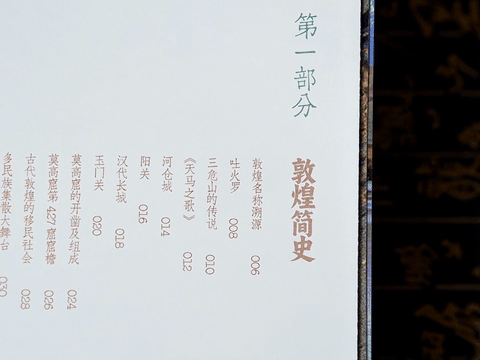 第一部分
敦煌简史
敦煌名称溯源 006
吐火罗 008
三危山的传说 010
《天马之歌》 012
河仓城 014
阳关 016
汉代长城 018
玉门关 020
莫高窟的开凿及组成 024
莫高窟第 427 窟窟檐 026
古代敦煌的移民社会 028
多民族集散大舞台 030